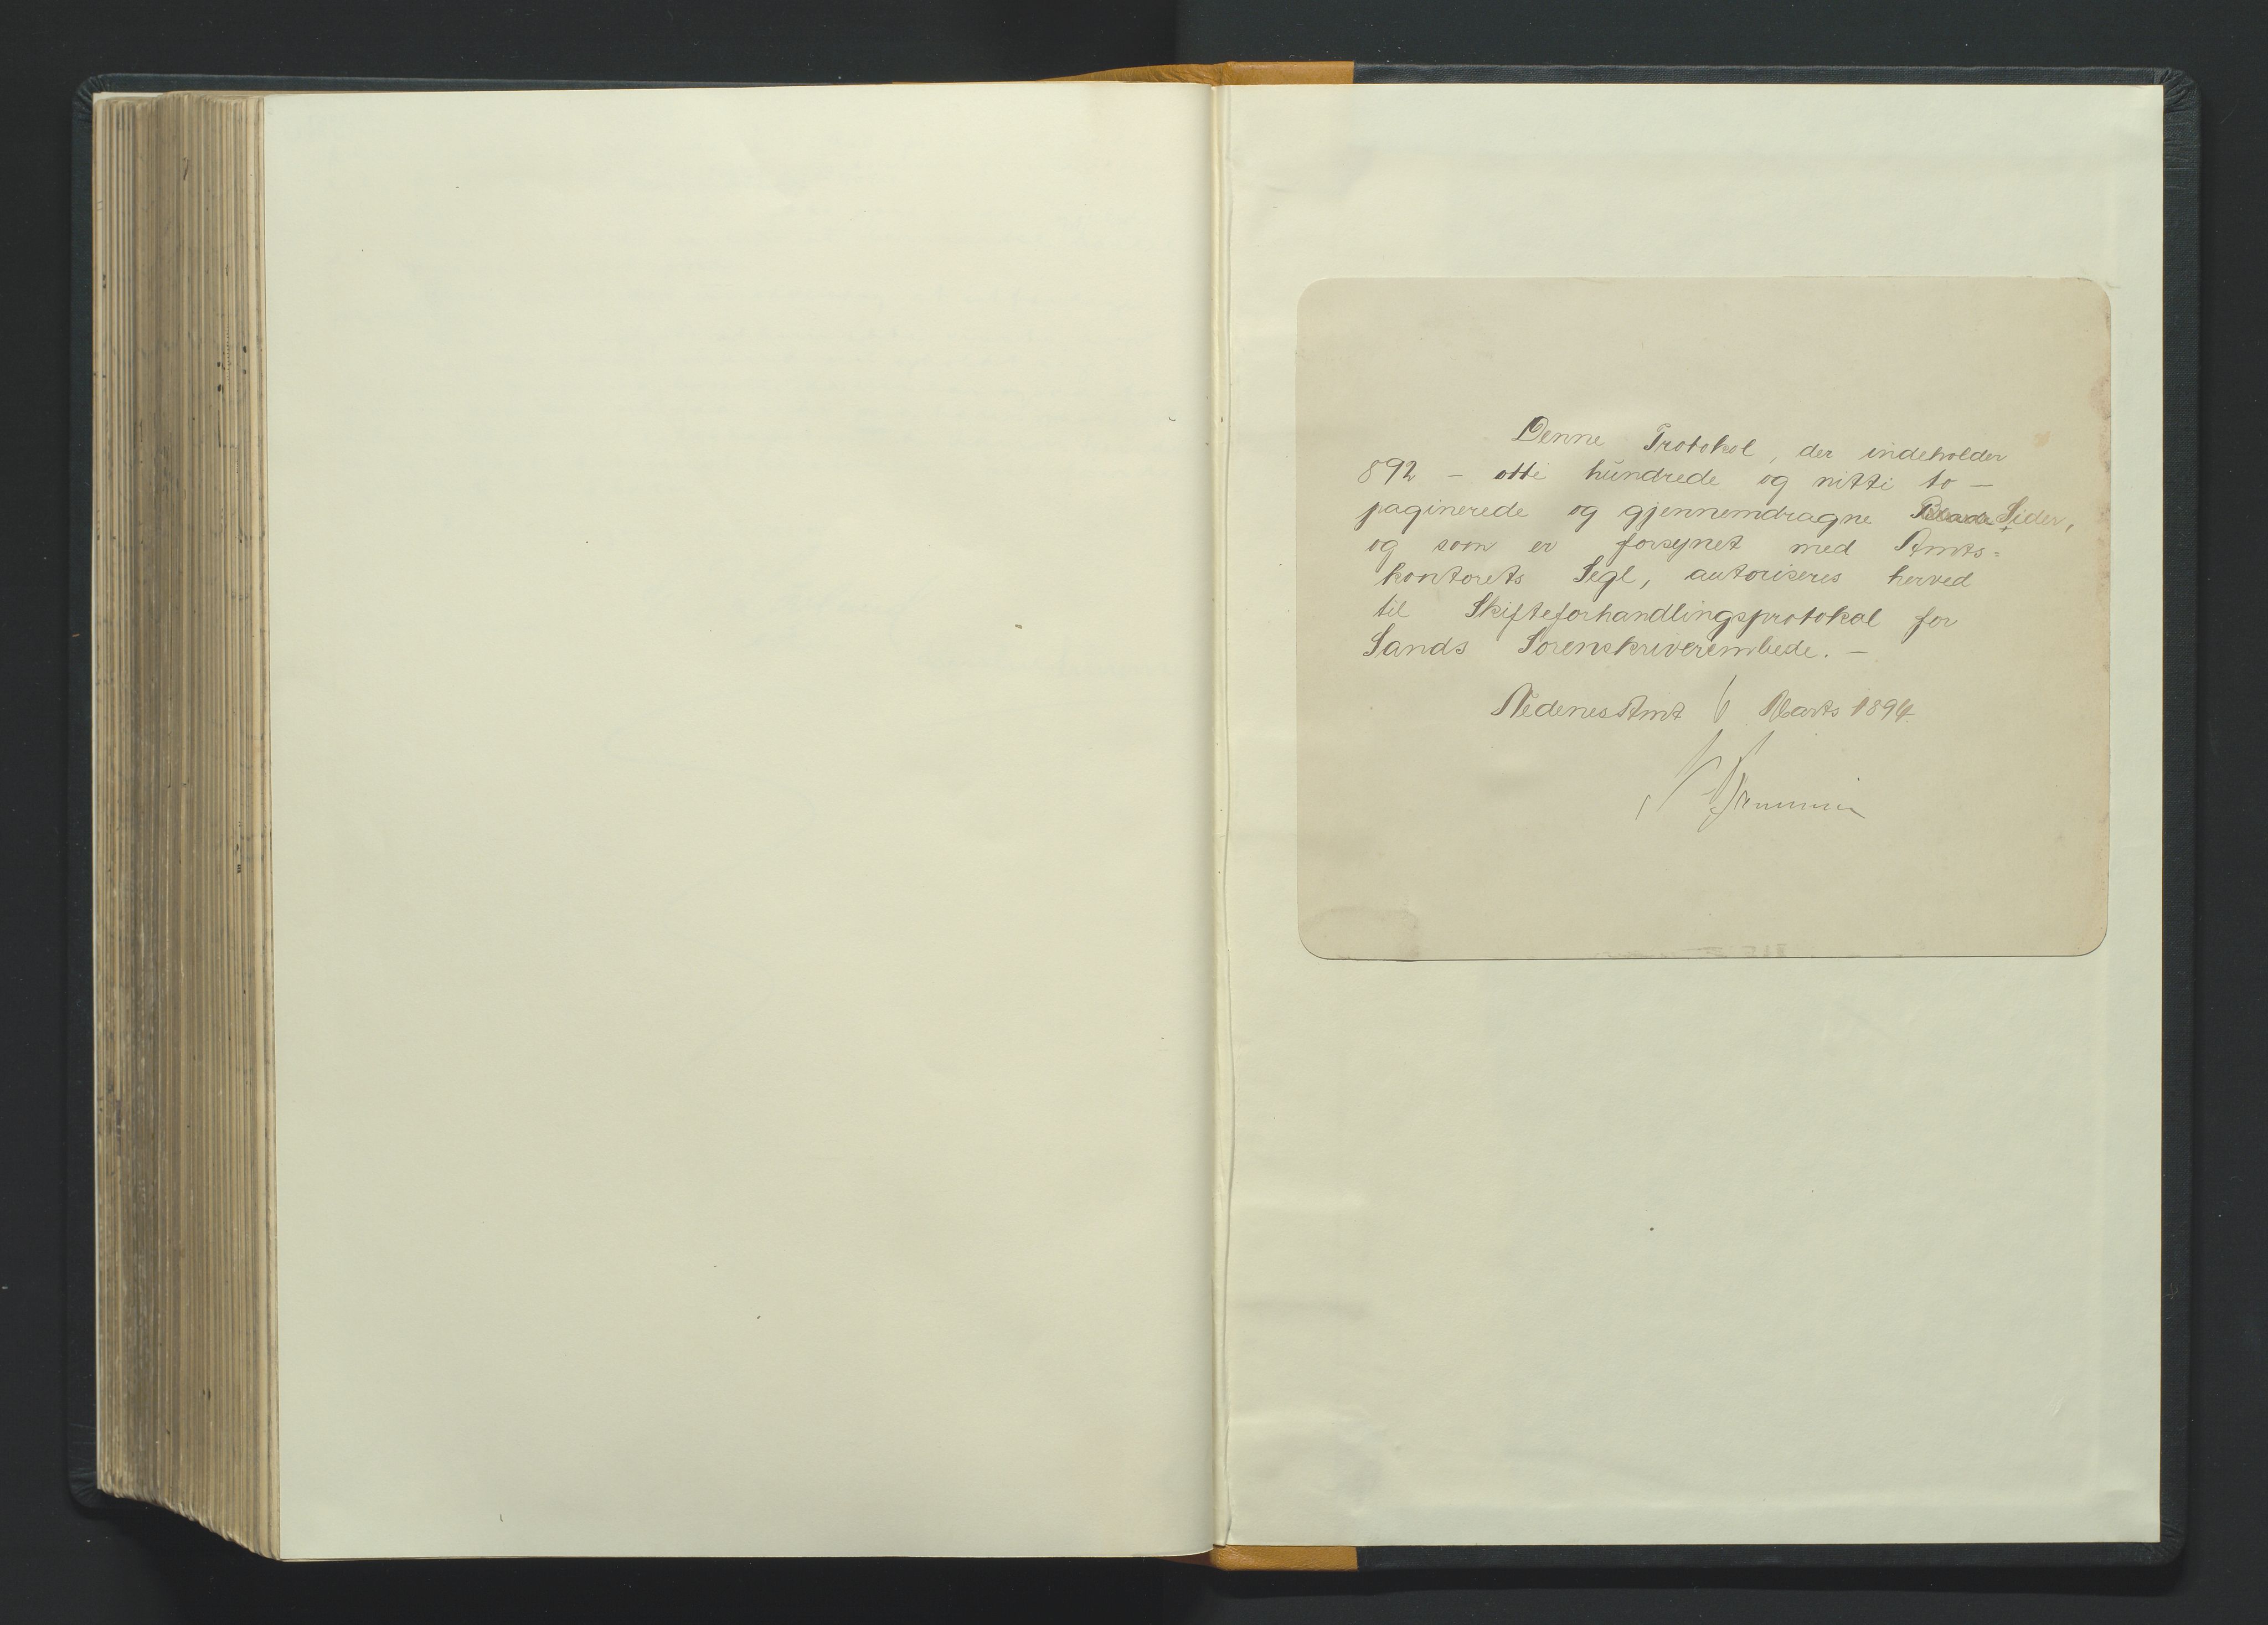 Denne Protokol, der indeholder
892 – otte hundrede og nitti to –
paginerede og gjennemdragne Blade Sider,
og som er forsynet med Amts=
kontorets Segl, autoriseres herved
til Skifteforhandlingsprotokol for
Sands Sorenskriverembede. –
Nedenes Amt 6 Marts 1894